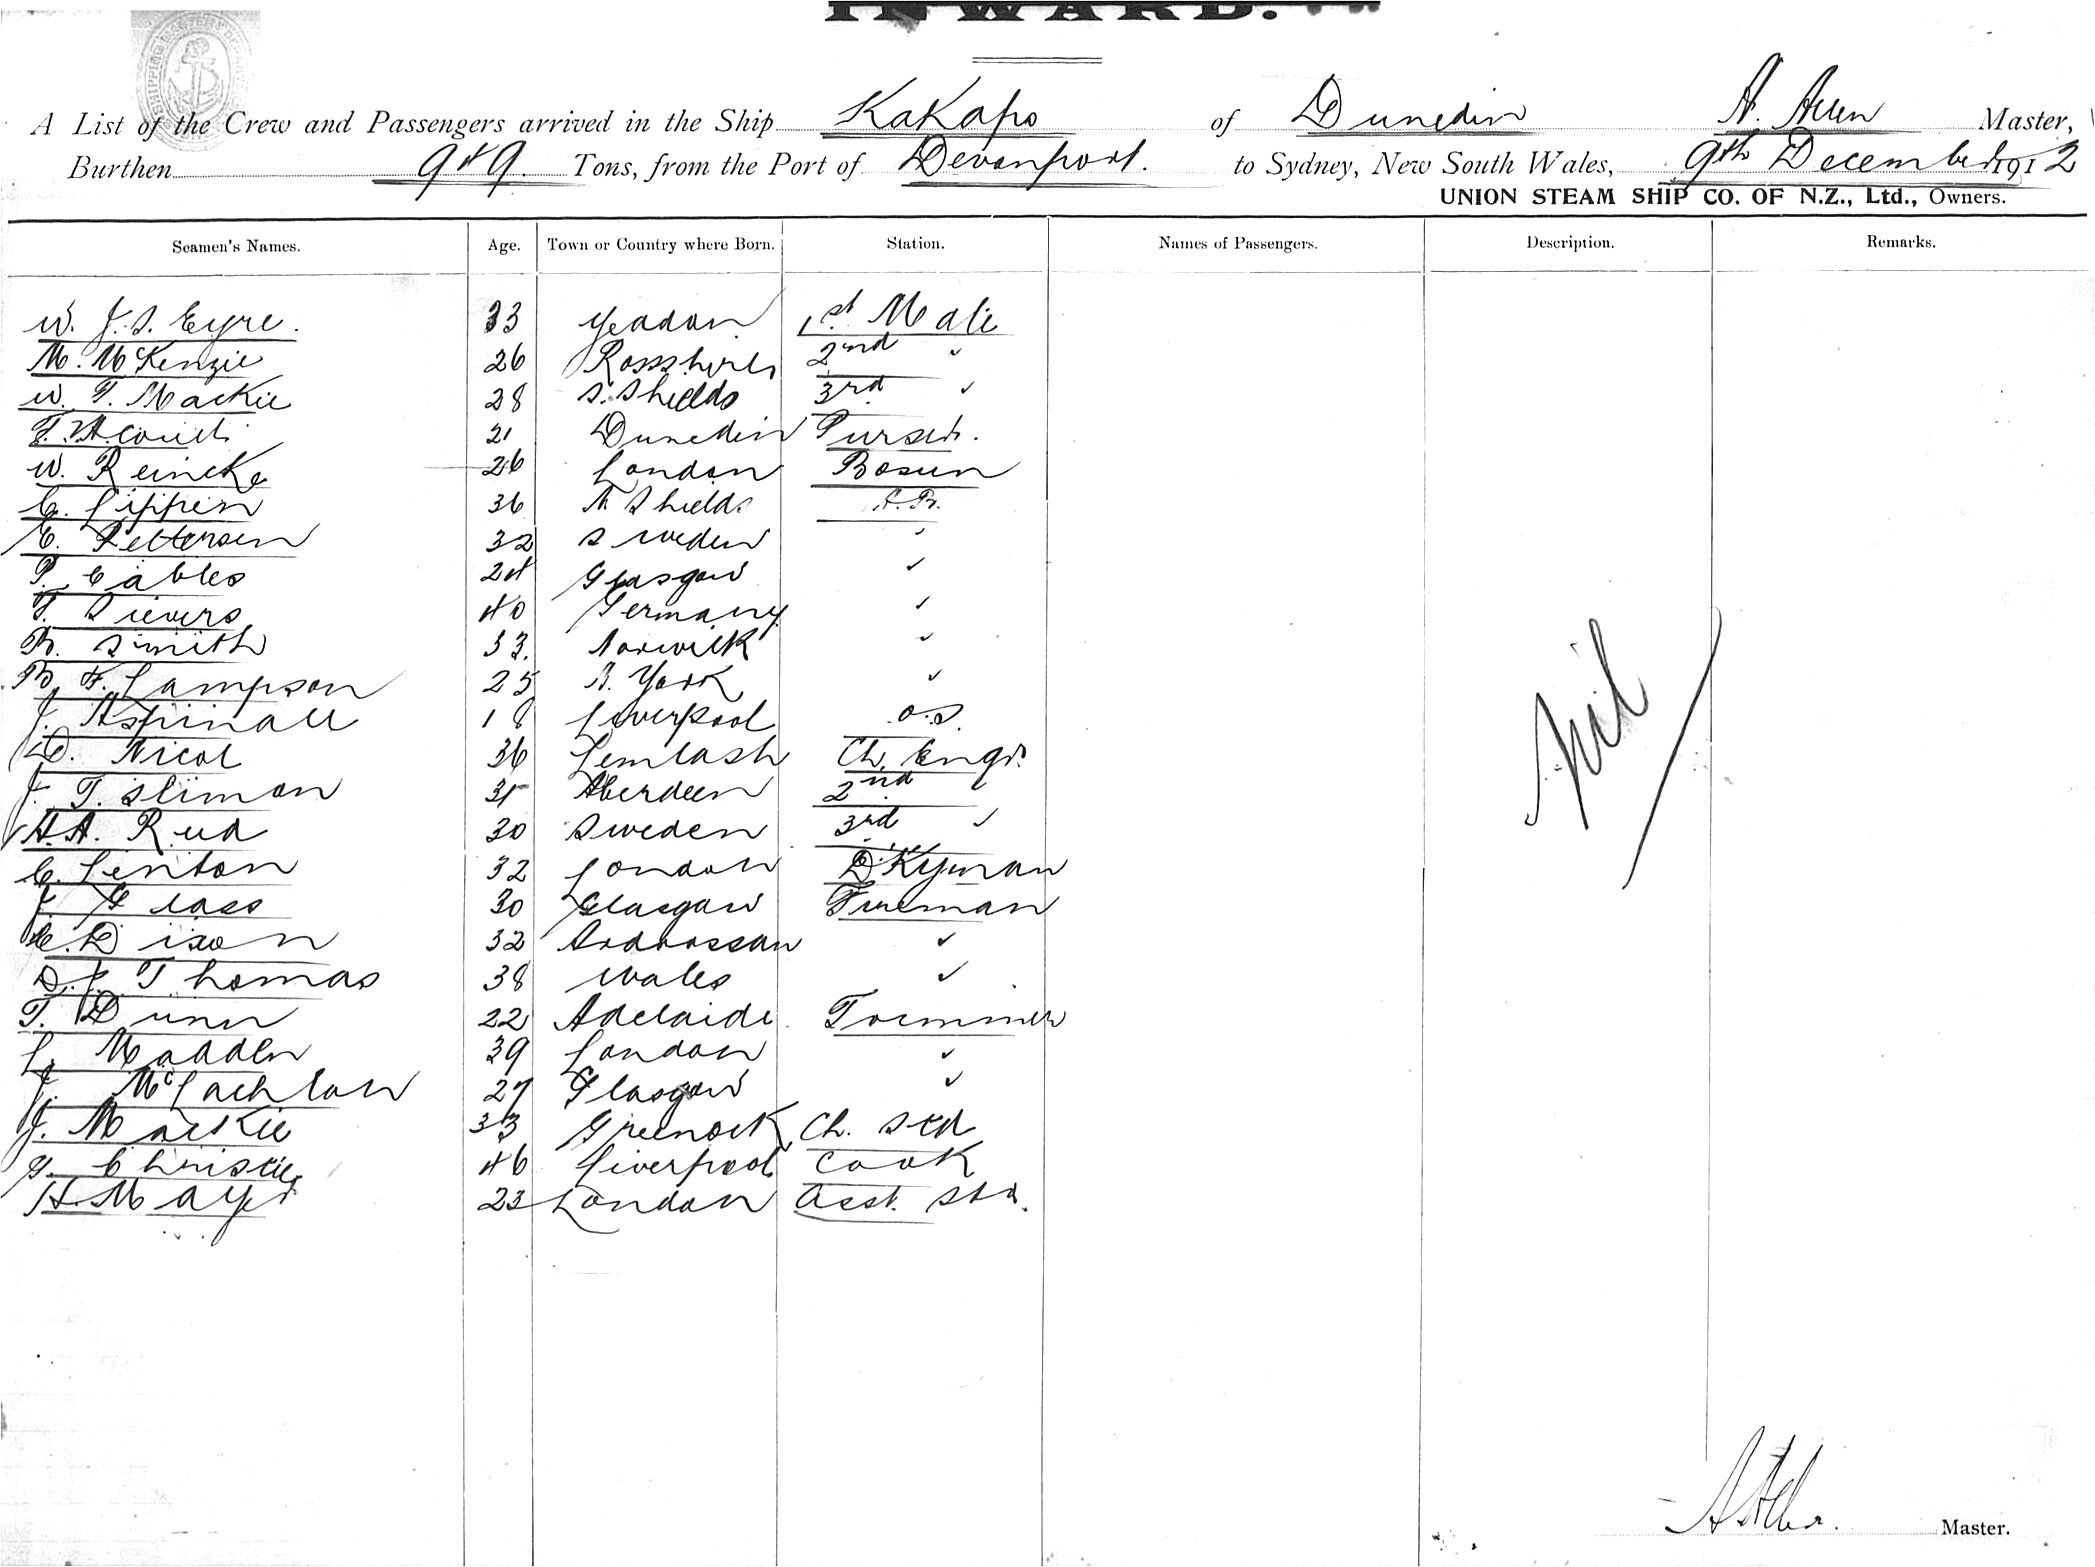 INWARD.
A List of the Crew and Passengers arrived in the Ship KaKapo of Dunedin A. Allen Master,
Burthen 949. Tons, from the Port of Devonport. to Sydney, New South Wales, 9th December 1912
UNION STEAM SHIP CO. OF N.Z., Ltd., Owners.
Seamen's Names. Age. Town or Country where Born. Station. Names of Passengers. Description. Remarks.
W. J. S. Eyre. 33 Yeadon 1st Mate
M. McKenzie 26 Rossshire 2nd "
W. T. Mackie 28 S. Shields 3rd "
21 Dunedin Purser.
W. Reincke 26 London Bosun
C. Lippien 36 N. Shields A.B.
C. Pettersen 32 Sweden "
P. Cables 24 Glasgow "
T. Sievers 40 Germany "
R. Smith 33. "
B. F. Lampson 25 N. York "
J. Aspinall 18 Liverpool O.S.
D. Nicol 36 Lamlash Ch. Engr.
J. T. Slimon 35 Aberdeen 2nd "
A. A. Rud 30 Sweden 3rd "
C. Lenton 32 London D'Kyman
J. Glass 30 Glasgow Fireman
C. Dixon 32 Ardrossan "
D. J. Thomas 38 Wales "
T. Dunn 22 Adelaide Trimmer
L. Madden 39 London "
J. McLachlan 27 Glasgow "
J. Mackie 33 Greenock Ch. Std
G. Christie 46 Liverpool Cook
H. Mayer 23 London Asst. Std.
Nil
Master.